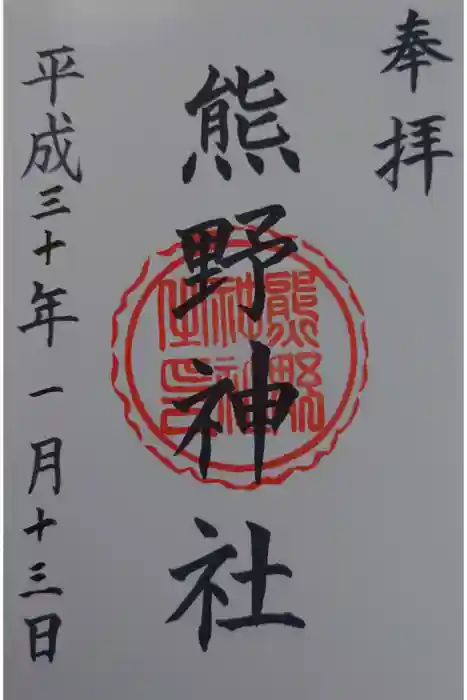 奉拝
熊野神社
平成三十年一月十三日
熊野
神社
之印